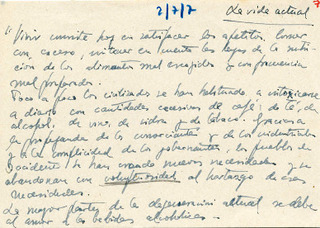 2/7/7
La vida actual
7
"Vivir consiste hoy en satisfacer los apetitos, comer
con exceso, sin tener en cuenta las leyes de la nutri-
ción de los alimentos mal escogidos y con frecuencia
mal preparados.
Poco a poco los civilizados se han habituado, a intoxicarse
a diario con cantidades excesivas de café, de té, de
alcohol, de vino, de sidra y de tabaco. Gracias a
la propaganda de los comerciantes y de los industriales
y a la complicidad de los gobernantes, los pueblos de
Occidente se han creado nuevas necesidades y se
abandonan con voluptuosidad al hartazgo de esas
necesidades.
La mayor parte de la degeneración actual se debe
al amor a las bebidas alcohólicas.